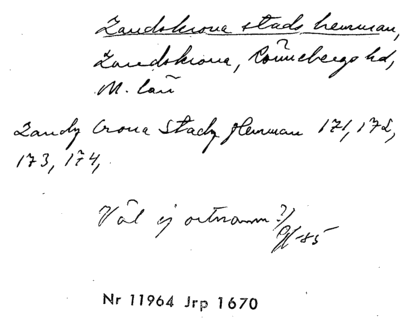 Landskrona stads hemman,
Landskrona, Rönnebergs hd,
M. län
Landz Crona Stadz Hemman 171, 172,
173, 174,
Väl ej ortnamn?/
-85
Nr 11964 Jrp 1670